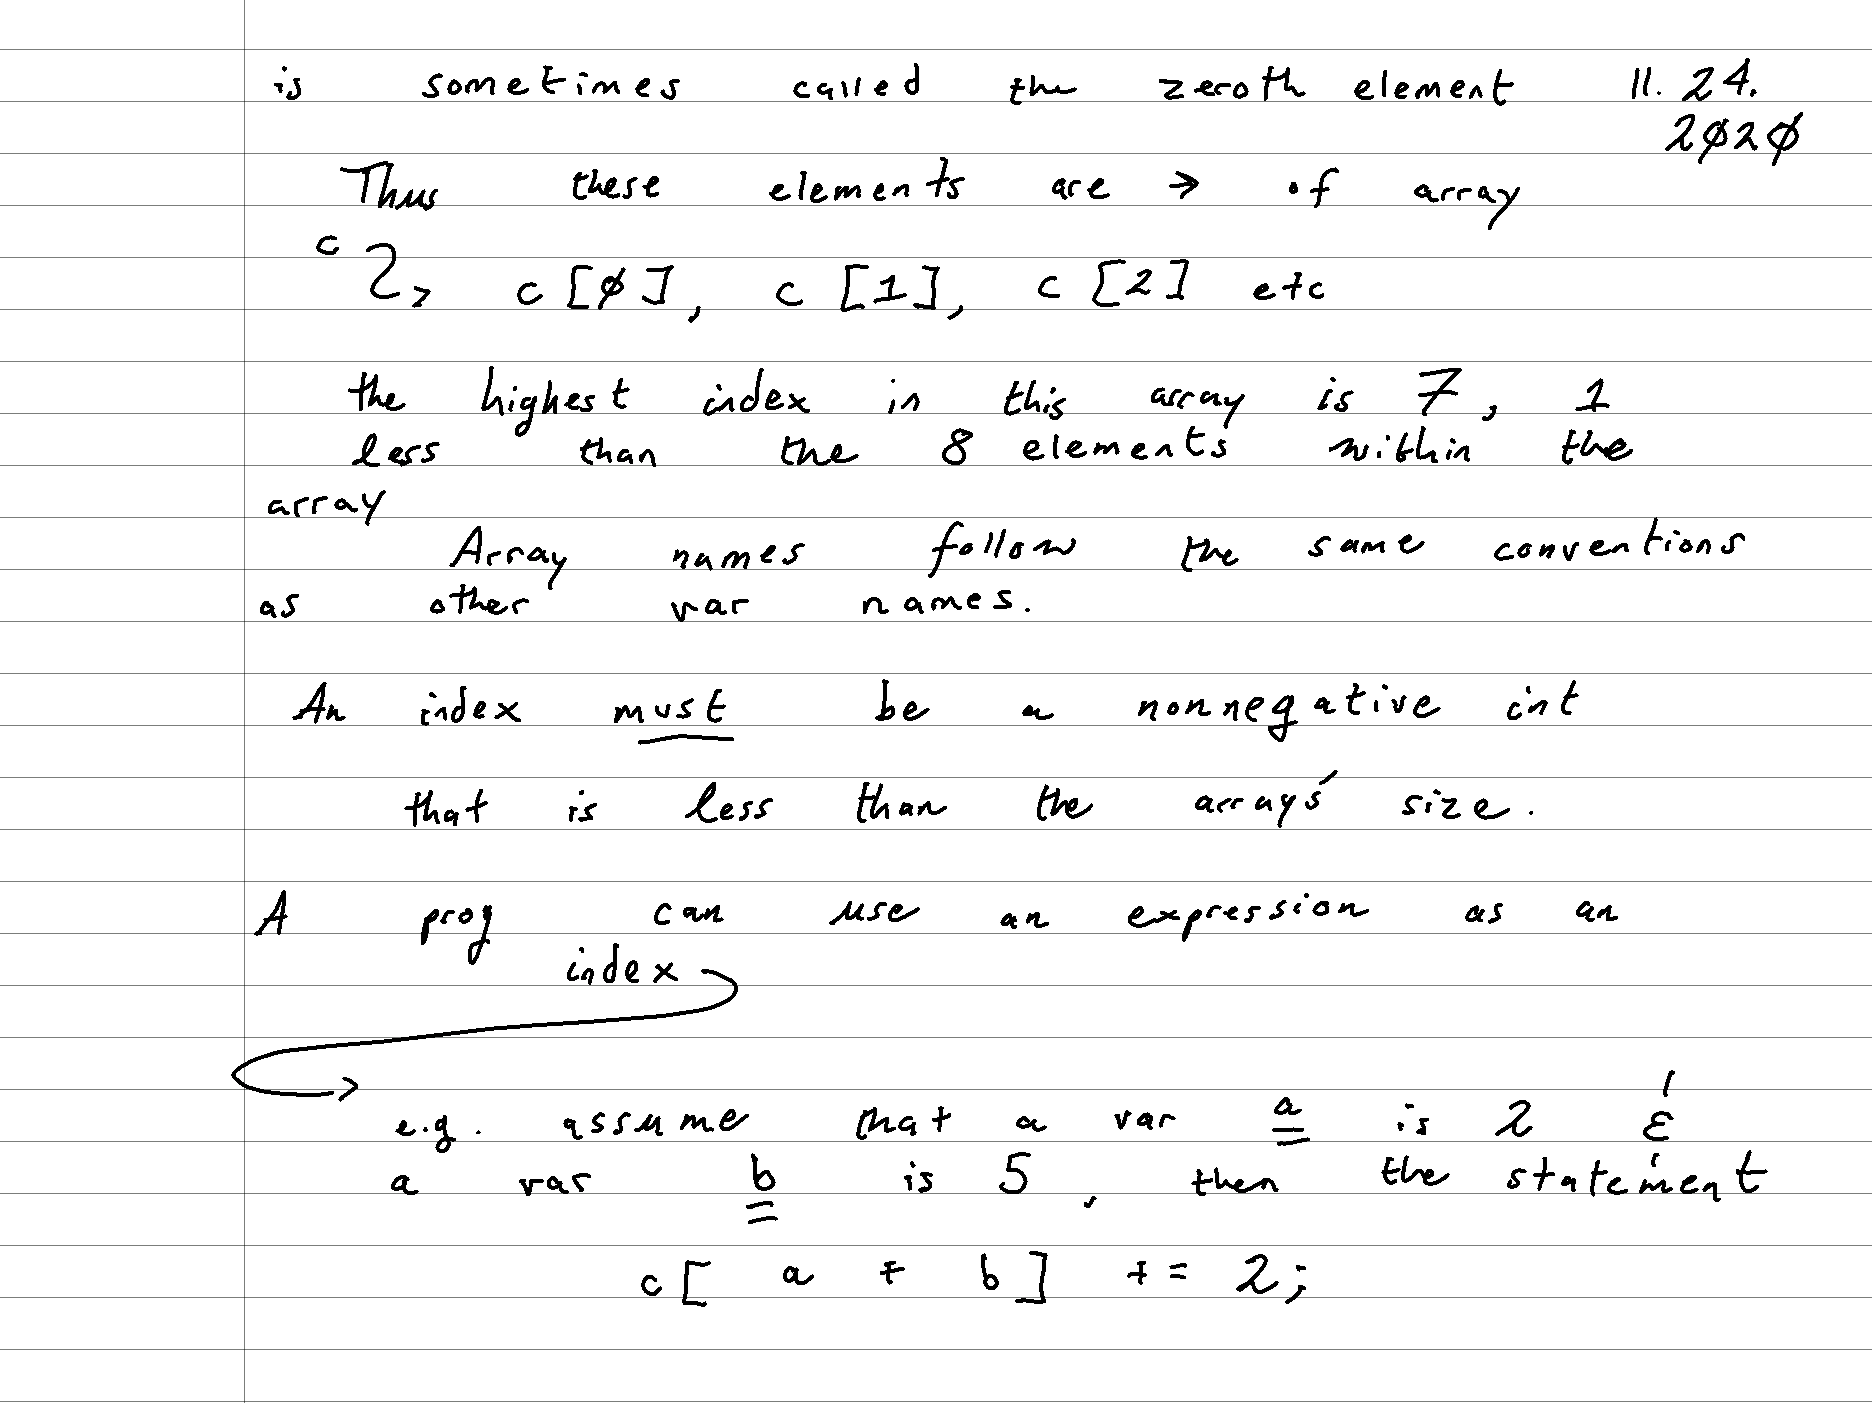 is sometimes called the zeroth element 11. 24.
2020
Thus these elements are → of array
c
c [0], c [1], c [2] etc
the highest index in this array is 7, 1
less than the 8 elements within the
array
Array names follow the same conventions
as other var names.
An index must be a nonnegative int
that is less than the array's size.
A prog can use an expression as an
index
e.g. assume that a var a is 2 &
a var b is 5, then the statement
c[ a + b] += 2;